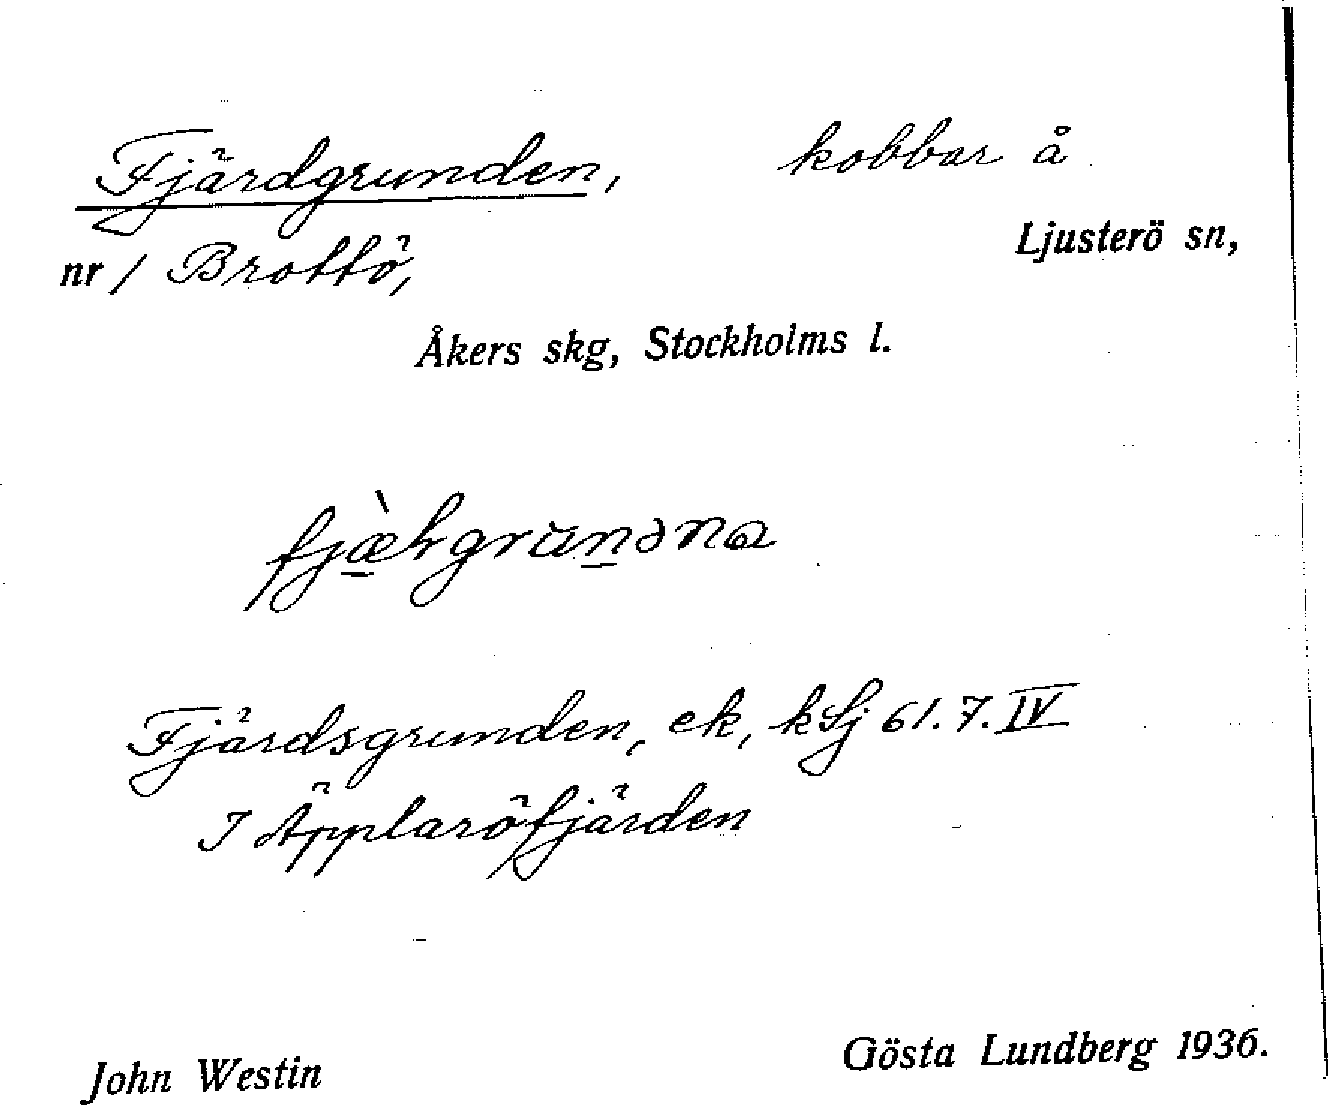 Fjärdgrunden, kobbar å
Ljusterö sn,
nr 1 Brottö,
Åkers skg, Stockholms l.
Fjärdsgrunden, ek, kSj 61.7.IV
I Äpplaröfjärden
John Westin
Gösta Lundberg 1936.